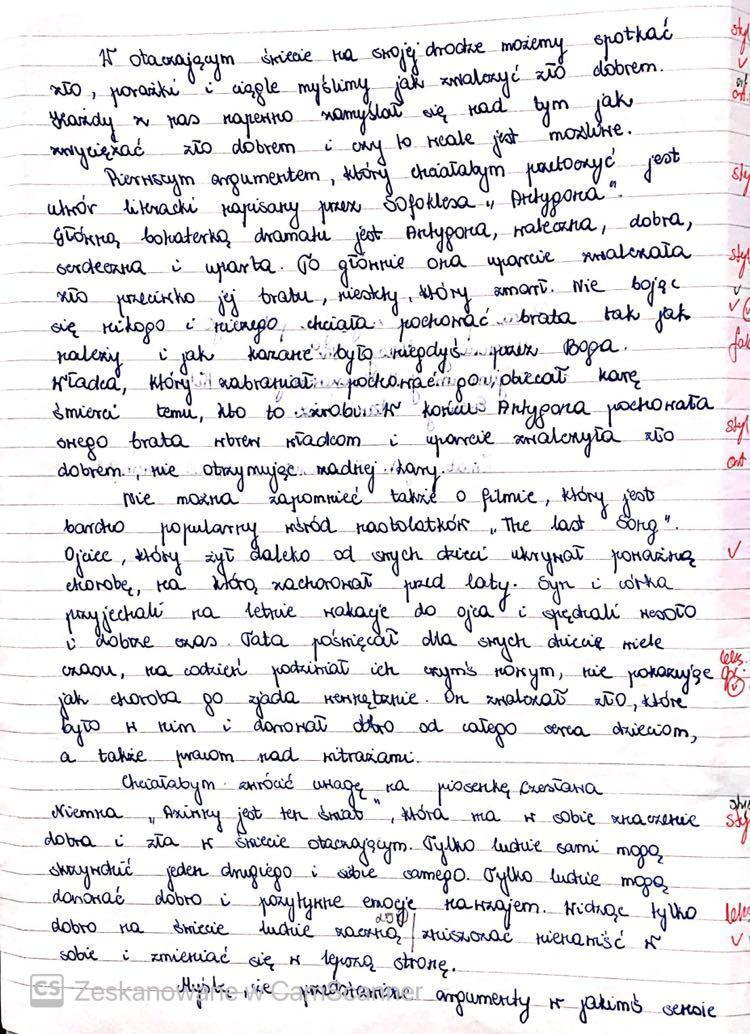 W otaczającym świecie na swojej drodze możemy spotkać
zło, porażki i ciągle myślimy jak zwalczyć zło dobrem.
Każdy z nas napewno zamyślał się nad tym jak
zwyciężać zło dobrem i czy to wcale jest możliwe.
Pierwszym argumentem, który chciałabym przetoczyć jest
utwór literacki napisany przez Sofoklesa „Antygona".
Główną bohaterką dramatu jest Antygona, waleczna, dobra,
serdeczna i uparta. To głównie ona uparcie zwalczała
zło przeciwko jej bratu, niestety, który zmarł. Nie bojąc
się nikogo i niczego, chciała pochować brata tak jak
należy i jak kazane było niegdyś przez Boga.
Władca, który zabraniał pochować go, obiecał karę
śmierci temu, kto to zrobi. W końcu Antygona pochowała
swego brata wbrew władcom i uparcie zwalczyła zło
dobrem, nie otrzymując żadnej kary.
Nie można zapomnieć także o filmie, który jest
bardzo popularny wśród nastolatków „The last Song".
Ojciec, który żył daleko od swych dzieci ukrywał poważną
chorobę, na którą zachorował przed laty. Syn i córka
przyjechali na letnie wakacje do ojca i spędzali wesoło
i dobrze czas. Tata poświęcał dla swych dziecię wiele
czasu, na codzień podziwiał ich czymś nowym, nie pokazując
jak choroba go zjada wewnętrznie. On zwalczał zło, które
było w nim i darował dobro od całego serca dzieciom,
a także pracom nad witrażami.
Chciałabym zwrócić uwagę na piosenkę Czesława
Niemna „Dziwny jest ten świat", która ma w sobie znaczenie
dobra i zła w świecie otaczającym. Tylko ludzie sami mogą
skrzywdzić jeden drugiego i siebie samego. Tylko ludzie mogą
darować dobro i pozytywne emocje nawzajem. Widząc tylko
dobro na świecie ludzie zaczną zniszczać nienawiść w
sobie i zmieniać się w lepszą stronę.
CS Zeskanowane w CamScanner
Myślę, że przedstawione argumenty w jakimś sensie